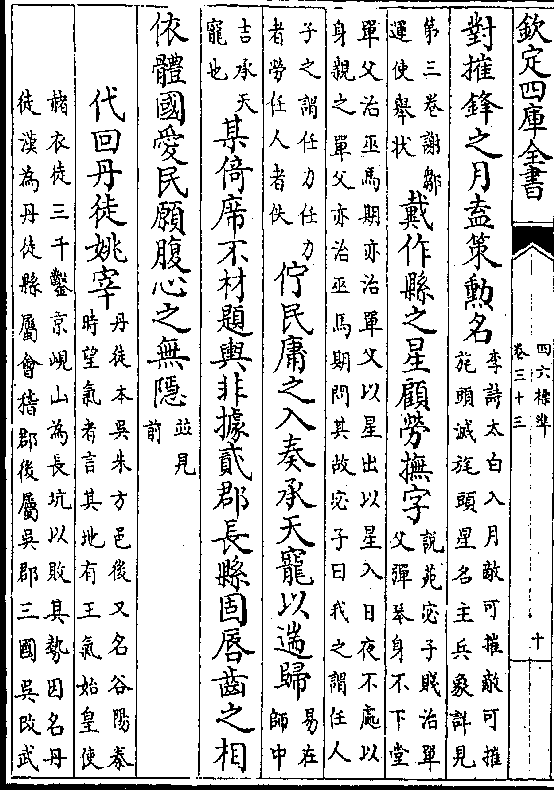 欽定四庫全書
四六標準
卷三十三
十
對摧鋒之月盍策勲名
李詩太白入月敵可摧敵可摧
旄頭滅旄頭星名主兵象詳見
第三卷謝鄒
運使舉狀
戴作縣之星顧勞撫字
說苑宓子賤治單
父彈琴身不下堂
單父治巫馬期亦治單父以星出以星入日夜不處以
身親之單父亦治巫馬期問其故宓子曰我之謂任人
子之謂任力任力
者勞任人者佚
佇民庸之入奏承天寵以遄歸
易在
師中
吉承天
寵也
某倚席不材題輿非據貳郡長縣固唇齒之相
依體國愛民願腹心之無隱
並見
前
代回丹徒姚宰
丹徒本吳朱方邑後又名谷陽秦
時望氣者言其地有王氣始皇使
赭衣徒三千鑿京峴山為長坑以敗其勢因名丹
徒漢為丹徒縣屬會稽郡後屬吳郡三國吳改武